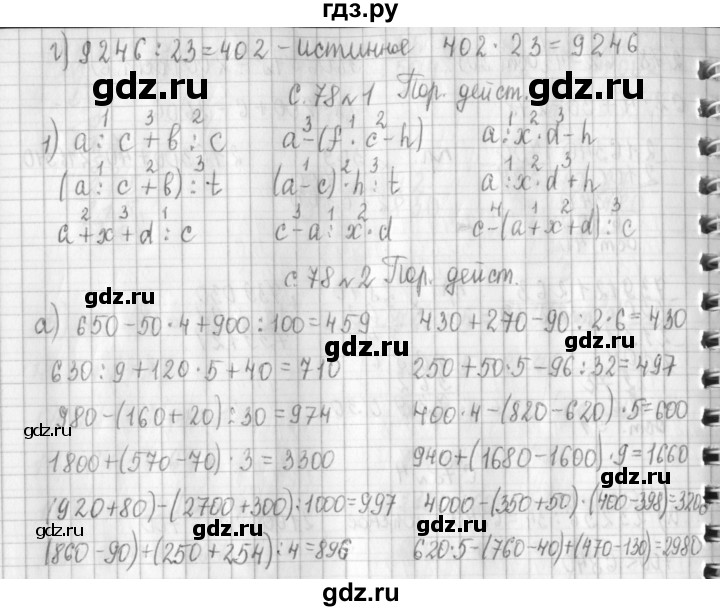 гдз.ру
г) 9246 : 23 = 402 - истинное 402 · 23 = 9246
gdz.ru gdz.ru
с. 78 №1 Пор. дейст.
1 3 2 3 1 2 1 2 3
1) a : c + b : c a - (f · c - h) a : x · d - h
1 2 3 1 2 3 1 2 3
(a : c + b) : t (a - c) · h : t a : x · d + h
2 3 1 3 1 2 4 1 2 3
a + x + d : c c - a : x · d c - (a + x + d) : c
с. 78 №2 Пор. дейст.
gdz.ru
а) 650 - 50 · 4 + 900 : 100 = 459 430 + 270 - 90 : 2 · 6 = 430
gdz.ru gdz.ru
630 : 9 + 120 · 5 + 40 = 710 250 + 50 · 5 - 96 : 32 = 497
980 - (160 + 20) : 30 = 974 400 · 4 - (820 - 620) · 5 = 600
gdz.ru gdz.ru
1800 + (570 - 70) · 3 = 3300 940 + (1680 - 1600) · 9 = 1660
gdz.ru
(920 + 80) - (2700 + 300) : 1000 = 997 4000 - (350 + 50) · (400 - 398) = 3200
gdz.ru gdz.ru
(860 - 90) + (250 + 254) : 4 = 896 620 · 5 - (760 - 40) + (470 - 130) = 2980
gdz.ru